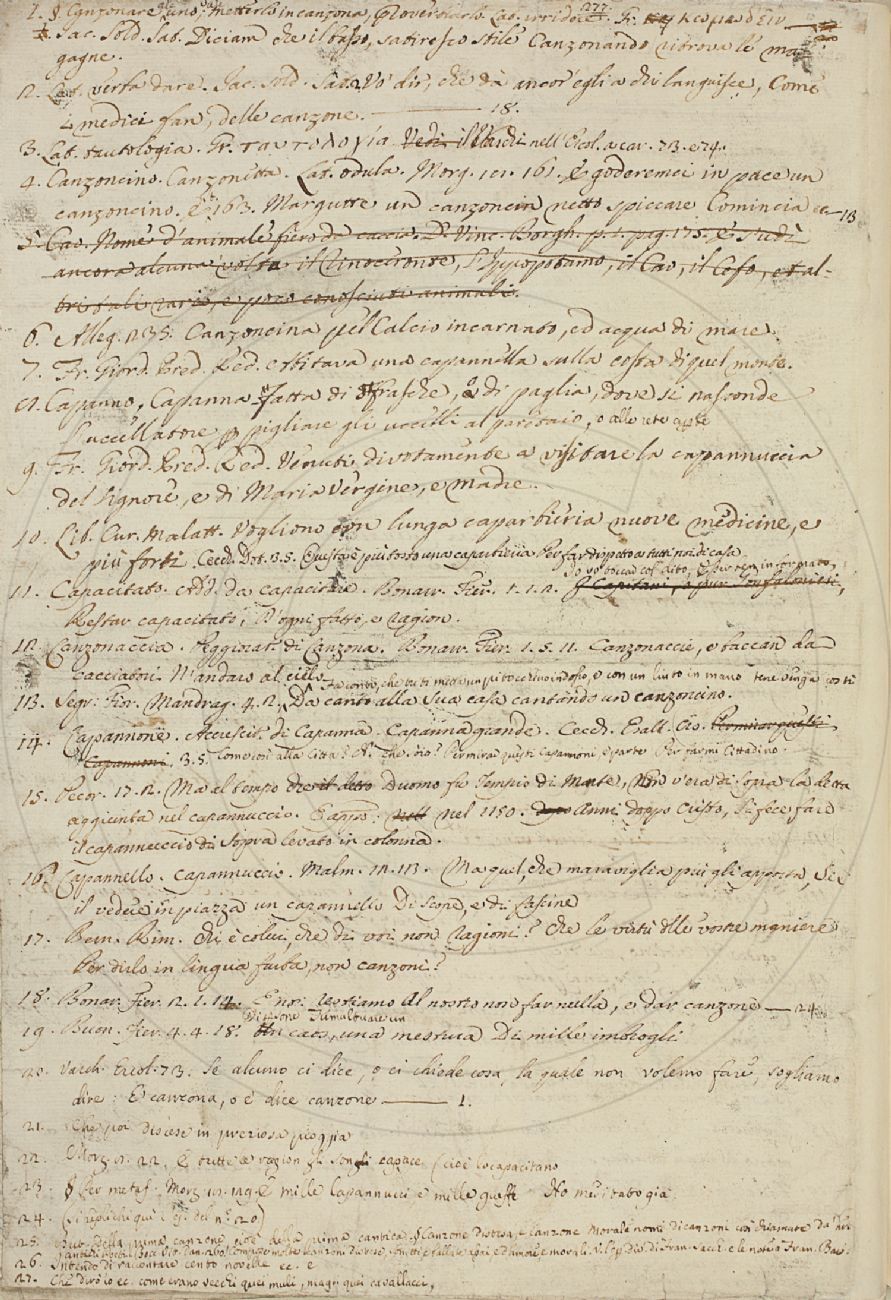 1. § Canzonare uno, metterlo in canzona, Proverbiarlo. Lat. irridere. Gr.
Jac. Sold. Sat. Diciam che il basso, satiresco stile Canzonando ritrova le ma
gagne.
2. Lat. verba dare. Jac. Sold. Sat. Vo' dir, che dà ancor egli a chi languisce, Come
i medici fan, delle canzone. 18.
3. Lat. tautologia. Gr. ταυτολογία. Vedi il Varchi nell'Ercol. a car. 73. e 74.
4. Canzoncino. Canzonetta. Lat. odula. Morg. 161. E goderemci in pace un
canzoncino. E 163. Margutte un canzoncin netto spiccare Comincia ec. 13
5. Cao. Nome d'animale fiero da caccia. D. Vinc. Borgh. p. 1. pag. 175. E vedi
ancora alcuna volta il Rinoceronte, l'Hippopotamo, il Cao, il Cefo, et al-
tri tali rari, e poco conosciuti animali.
6. Alleg. 235. Canzoncina pel Calcio incarnato, ed acqua di mare.
7. Fr. Giord. Pred. Red. Abitava una capannella sulla costa di quel monte.
8. Capanno, Capanna fatta di frasche, o di paglia, dove si nasconde
l'uccellatore p pigliare gli uccelli al paretaio, o alle rete aperte
9. Fr. Giord. Pred. Red. Venuti divotamente a visitare la capannuccia
del Signore, e di Maria Vergine, e madre.
10. Lib. Cur. Malatt. Vogliono con lunga caparbieria nuove medicine, e
più forti. Cecch. Dot. 3.5. Questa è piuttosto una caparbieria Per far dispetto a tutti noi di casa
11. Capacitato. Add. da capacitare. Bonarr. Fier. 1. 1. 2.
Restar capacitato, D'ogni fatto, e ragion.
12. Canzonaccia. Peggiorat. di Canzona. Bonarr. Fier. 1. 5. 11. Canzonaccie, e baccan da
cacciatori N'andaro al cielo
13. Segr. Fior. Mandrag. 4. 2. Da canto alla sua casa cantando un canzoncino.
14. Capannone. Accrescit. di Capanna. Capanna grande. Cecch. Esalt. Cro.
Capannoni. 3.5. Come così alla Città? N. Che so io? Per mirar questi Capannoni e parte Per farmi Cittadino.
15. Pecor. 17. 2. Ma al tempo che il detto Duomo fu Tempio di Marte, non v'era di sopra la detta
aggiunta nel capannuccio. E apres: nel 1150. anni doppo Cristo, si fece fare
il capannuccio di sopra levato in colonna.
16. Capannello. Capannuccio. Malm. 12. 13. Ma quel, che maraviglia più gli apporta, Si è
il vedere in piazza un capannello Di scope, e di fascine
17. Bern. Rim. Chi è colui, che di voi non ragioni? Che le virtù delle vostre maniere
Per dirlo in lingua furba, non canzoni?
18. Bonar. Fier. 2. 1. 14. E noi restiamo Al nostro non far nulla, e dar canzone 24
19. Buon. Fier. 4. 4. 18. Un caos, una mestura Di mille imbrogli
20. Varch. Ercol. 73. Se alcuno ci dice, o ci chiede cosa, la quale non volemo fare, sogliamo
dire: E canzona, o e' dice canzone 1.
21. Che poi discese in preziosa pioggia
22. Morg. 22. E tutte a ragion gli son capace (cioè lo capacitano
23. § Per metaf. Morg. E mille capannucci e mille gueffe Ho meritato già.
24. (si replichi qui l'es. del n. 20)
26. Intendo di raccontare cento novelle ec. e
27. Che dirò io ec. come erano vecchi quei muli, magri quei cavallacci,